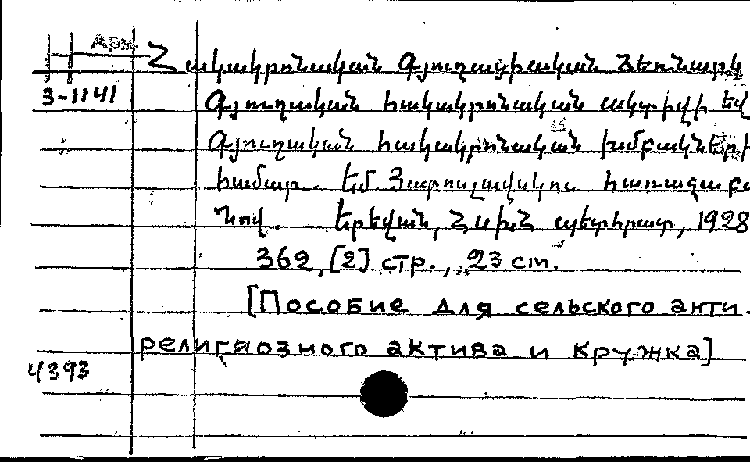 Арм.
Հակակրօնական Գյուղացիական Ձեռնարկ
3-1141
Գյուղական հակակրօնական ակտիվի եվ
Գյուղական հակակրօնական խմբակների
համար. Եմ Յարոսլավսկու
Նով. Երեվան, Հ.Ս.Խ.Հ պետհրատ, 1928
362, [2] стр., 23 см.
[Пособие для сельского анти-
религиозного актива и кружка]
4393